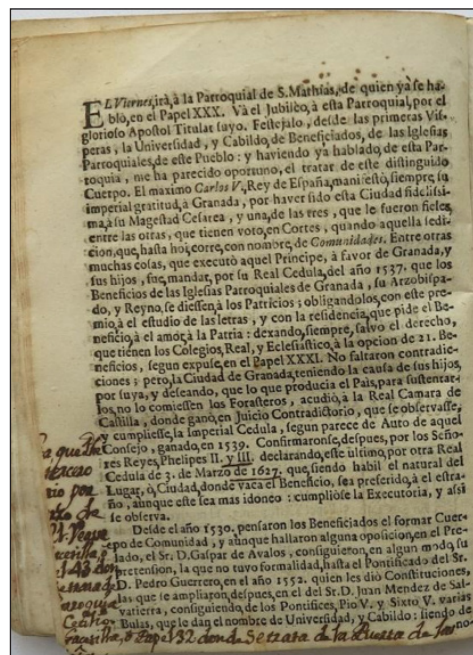 EL Viernes, irà, à la Parroquial de S. Mathias, de quien yà se ha-
blò, en el Papel XXX. Và el Jubileo, à esta Parroquial, por el
glorioso Apostol Titular suyo. Festejalo, desde las primeras Vis-
peras, la Universidad, y Cabildo, de Beneficiados, de las Iglesias
Parroquiales, de este Pueblo: y haviendo yà hablado, de esta Par-
roquia, me ha parecido oportuno, el tratar de este distinguido
Cuerpo. El maximo Carlos V. Rey de España, manifestò, siempre, su
imperial gratitud, à Granada, por haver sido esta Ciudad fidelissi-
ma, à su Magestad Cesarea, y una, de las tres, que le fueron fieles,
entre las otras, que tienen voto, en Cortes, quando aquella sedi-
cion, que, hasta hoi, corre, con nombre, de Comunidades. Entre otras
muchas cosas, que executò aquel Principe, à favor de Granada, y
sus hijos, fue, mandar, por su Real Cedula, del año 1537. que los
Beneficios de las Iglesias Parroquiales de Granada, su Arzobispa-
do, y Reyno, se diessen, à los Patricios; obligandolos, con este pre-
mio, à el estudio de las letras, y con la residencia, que pide el Be-
neficio, à el amor, à la Patria: dexando, siempre, salvo el derecho,
que tienen los Colegios, Real, y Eclesiastico, à la opcion de 21. Be-
neficios, segun expuse, en el Papel XXXI. No faltaron contradic-
ciones; pero, la Ciudad de Granada, teniendo la causa de sus hijos,
por suya, y deseando, que lo que producia el Pais, para sustentar-
los, no lo comiessen los Forasteros, acudiò, à la Real Camara de
Castilla, donde ganò, en Juicio Contradictorio, que se observasse,
y cumpliesse, la Imperial Cedula, segun parece de Auto de aquel
Consejo, ganado, en 1539. Confirmaronse, despues, por los Seño-
res Reyes, Phelipes II. y III. declarando, este ultimo, por otra Real
Cedula de 3. de Marzo de 1627. que, siendo habil el natural del
Lugar, ò Ciudad, donde vaca el Beneficio, sea preferido, à el estra-
ño, aunque este sea mas idoneo: cumpliòse la Executoria, y assi
se observa.
Desde el año 1530. pensaron los Beneficiados el formar Cuer-
po de Comunidad, y aunque hallaron alguna oposicion, en el Pre-
lado, el Sr. D. Gaspar de Avalos, consiguieron, en algun modo, su
pretension, la que no tuvo formalidad, hasta el Pontificado del Sr.
D. Pedro Guerrero, en el año 1552. quien les diò Constituciones,
las que se ampliaron, despues, en el del Sr. D. Juan Mendez de Sal-
vatierra, consiguiendo, de los Pontifices, Pio V. y Sixto V. varias
Bulas, que le dan el nombre de Universidad, y Cabildo: siendo de
no-
que
por
de
el 43 don
Papel 32 donde Se trata de la